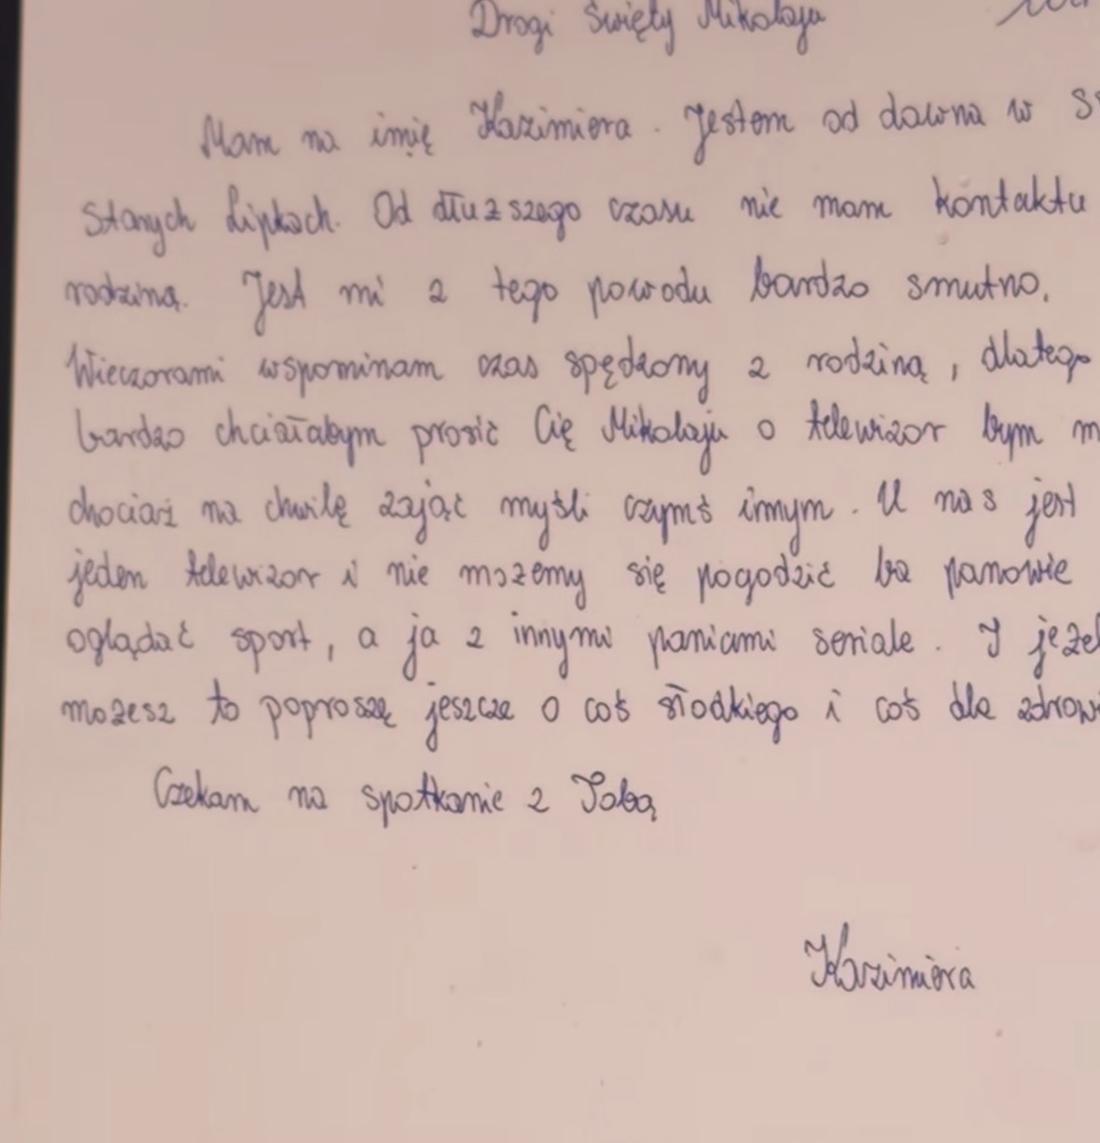 Drogi Święty Mikołaju
Mam na imię Kazimiera. Jestem od dawna w
Starych Lipkach. Od dłuższego czasu nie mam kontaktu
rodziną. Jest mi z tego powodu bardzo smutno.
Wieczorami wspominam czas spędzony z rodziną, dlatego
bardzo chciałabym prosić Cię Mikołaju o telewizor bym
chociaż na chwilę zająć myśli czymś innym. U nas jest
jeden telewizor i nie możemy się pogodzić bo panowie
oglądać sport, a ja z innymi paniami seriale. I
możesz to poproszę jeszcze o coś słodkiego i coś dla
Czekam na spotkanie z Tobą
Kazimiera